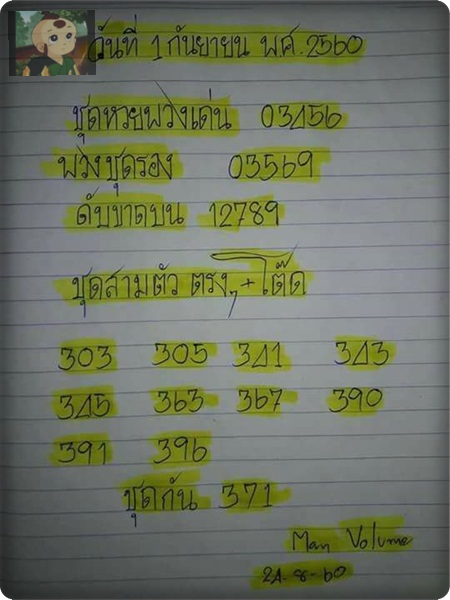 วันที่ 1 กันยายน พศ. 2560
ชุดหวยพวงเด่น 03456
พวงชุดรอง 03569
ดับขาดบน 12789
ชุดสามตัว ตรงๆ + โต๊ด
303 305 341 343
345 363 367 390
391 396
ชุดกัน 371
Man Volume
24-8-60